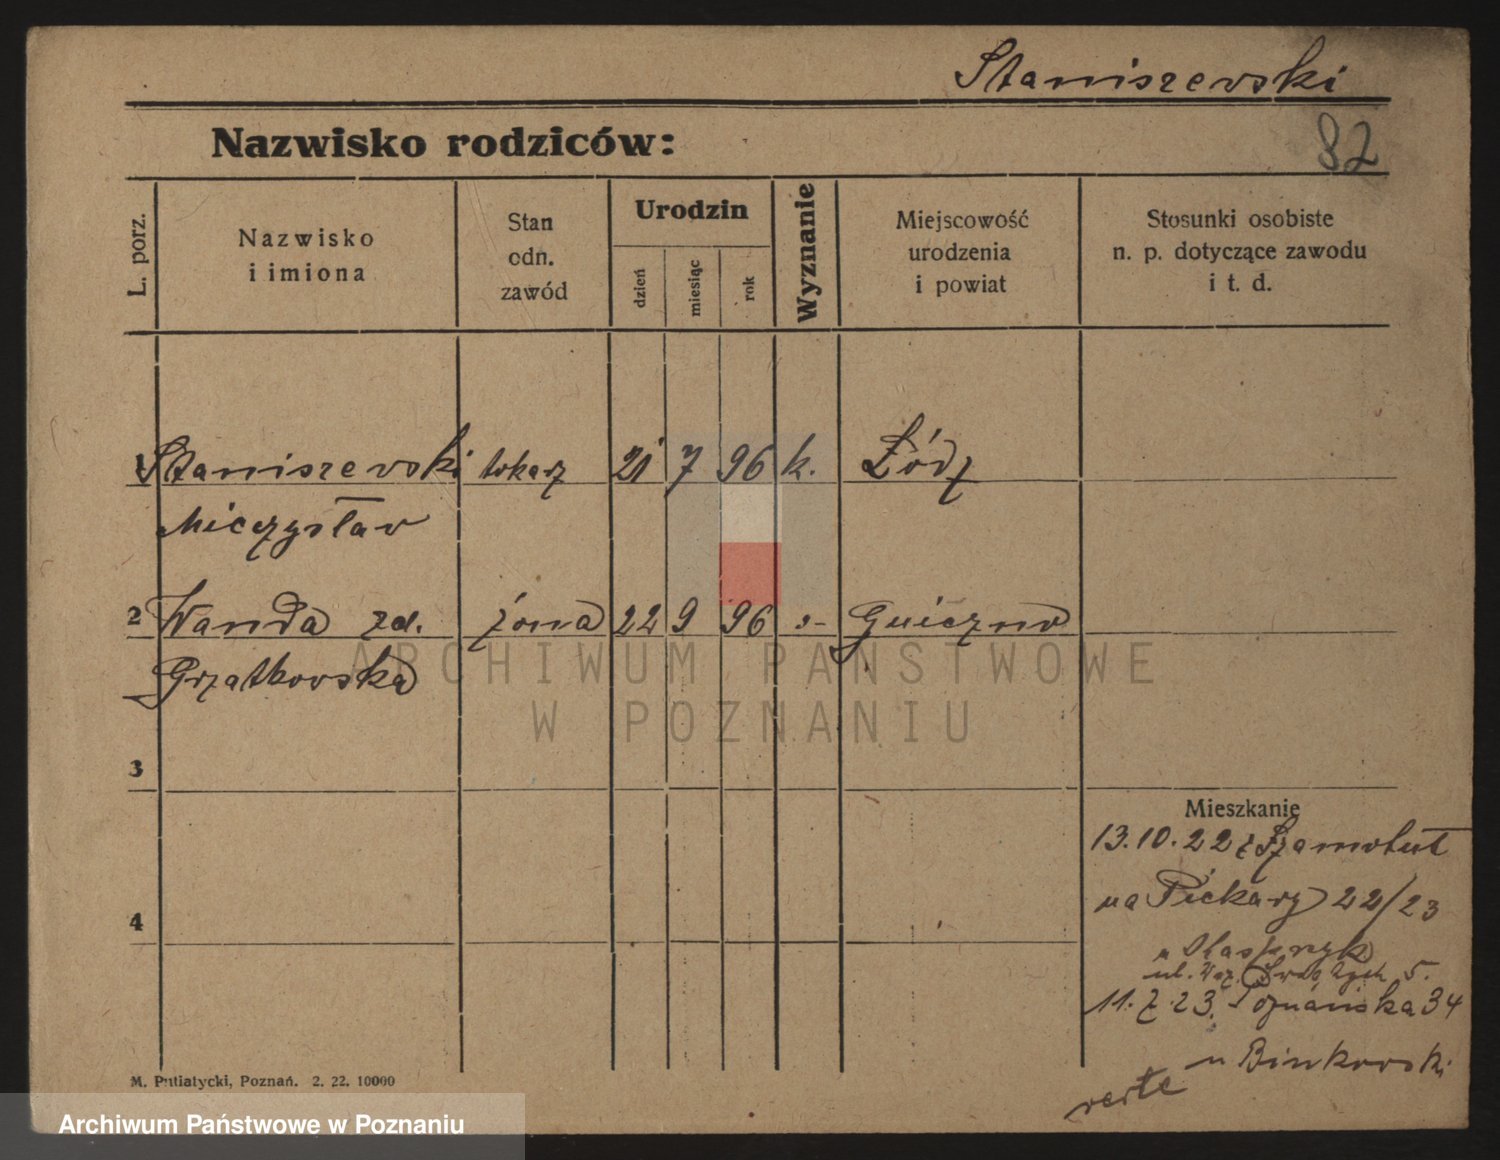 Staniszewski
82
Nazwisko rodziców:
L. porz.
Nazwisko
i imiona
Stan
odn.
zawód
Urodzin
dzień
miesiąc
rok
Wyznanie
Miejscowość
urodzenia
i powiat
Stosunki osobiste
n. p. dotyczące zawodu
i t. d.
1 Staniszewski tokarz 21 7 96 k. Łódź
Mieczysław
2 Wanda zd. żona 22 9 96 Gniezno
Grzątkowska
3
4
Mieszkanie
13.10.22 z Szamotuł
na Piekary 22/23
u Kasprzyk
ul. 5.
11.7.23. Poznańska 34
u Binkowski
verte
M. Putiatycki, Poznań. 2. 22. 10000
ARCHIWUM PAŃSTWOWE
W POZNANIU
Archiwum Państwowe w Poznaniu